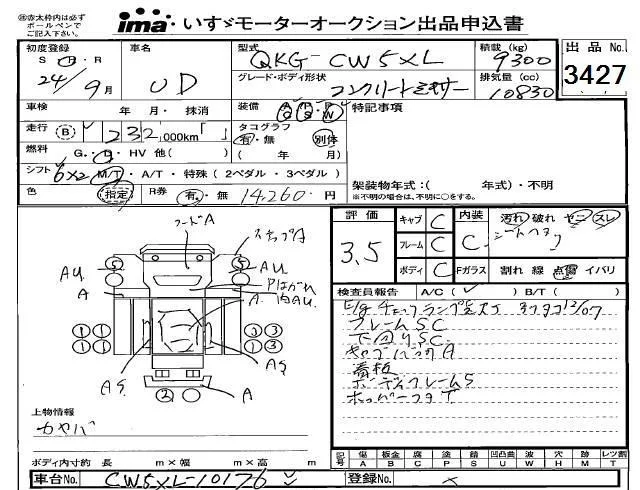 ※赤太枠内は必ずボールペンでご記入下さい。
ima いすゞモーターオークション出品申込書
初度登録 S・H・R 24年 9月
車名 UD
型式 QKG-CW5XL
積載 (kg) 9300
グレード・ボディ形状 コンクリートミキサー
排気量 (cc) 10830
出品No. 3427
車検 年 月・抹消
装備 AC PS PW
特記事項
走行 B 232,000km「 」
タコグラフ 有・無 別体
( 年 月)
燃料 G・D・HV 他( )
シフト 6×2 M/T・A/T・特殊(2ペダル・3ペダル)
架装物年式:( 年式)・不明
※不明の場合は、不明に○をする。
色 指定 R券 有・無 14,260円
評価 3.5
キャブ C
フレーム C
ボディ C
内装 C
汚れ 破れ ヤニ スレ
Fガラス 割れ 線 点傷 イバリ
検査員報告 A/C( ✓ ) B/T( )
フレームSC
下回りSC
看板
ボディフレームS
フードA
ステップA
AU
A
AU
Pはがれ
内AU
A
5 5
1 1 1 3
1 1 1 3
AS
AS
A
2
上物情報
カヤバ
ボディ内寸約 長 m×幅 m×高 m
記号 傷A 板金B 腐C 塗P 錆S 凹凸曲U 波W 穴H 跡M レツ割T
車台No. CW5XL-10176
登録No. ×